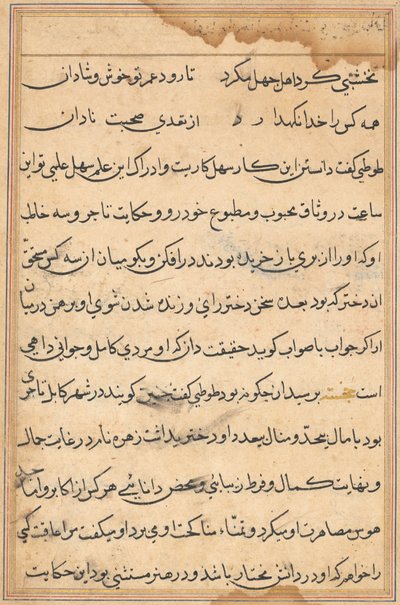 نخشبی گرد اهل جهل مگرد تا رود عمر تو خوش و شادان
همه کس را خدا نگهدارد از تقدی صحبت نادان
طوطی گفت دانستن این کار سهل کاریست و ادراک این علم سهل علمی تو این
ساعت در وثاق محبوب و مطبوع خود رو و حکایت تاجر و سه خاطب
او که او را از پری باز خریده بودند در افکن و بگو میان از سه کس مستحق
آن دختر که بود بعده سخن دختر رای و زنده شدن شوی او و برهمن در میان
ار اگر جواب با صواب گوید حقیقت دان که او مردی کامل و جوانی داهی
است خجسته پرسید آن چگونه بود طوطی گفت چنین گویند در شهر کابل تاجری
بود با مال بیحد و منال بیعدد او دختری داشت زهره نام در غایت جمال
و نهایت کمال و فرط زیبائی و محض دانایی هر کس از اکابر و اماثل
هوس مصاهرت او میکرد و تمناء مناکحت او می برد او میگفت مرا عاقبت کسی
را خواهم که او در دانش مختار باشد و در هنر مستثنی بود این حکایت